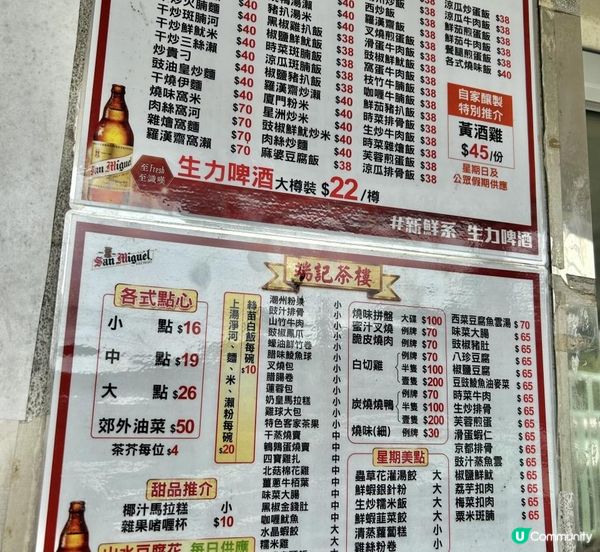 干炒火腩麵 $40
干炒斑腩河 $40
干炒鮮魷河 $40
干炒三絲瀨 $40
炒貴刁 $40
豉油皇炒麵 $40
干燒伊麵 $40
燒味窩米 $70
肉絲窩河 $70
雜燴窩麵 $70
羅漢齋窩瀨 $70
豬扒湯米 $40
黑椒雞扒飯 $40
椒鹽鮮魷飯 $40
時菜斑腩飯 $40
涼瓜斑腩飯 $40
椒鹽豬扒飯 $40
羅漢齋炒瀨 $40
廈門炒米 $40
星洲炒米 $40
豉椒鮮魷炒米 $40
肉絲炒麵 $40
麻婆豆腐飯 $38
西炒飯 $38
羅漢齋飯 $38
叉燒炒蛋飯 $38
滑蛋牛肉飯 $38
鼓椒牛肉飯 $38
窩蛋牛肉飯 $38
枝竹牛腩飯 $38
咖喱牛腩飯 $38
鮮茄豬扒飯 $38
時菜排骨飯 $38
生炒排骨飯 $38
時菜牛肉飯 $38
芙蓉煎蛋飯 $38
涼瓜排骨飯 $38
涼瓜炒蛋飯 $38
涼瓜牛肉飯 $38
鮮茄煎蛋飯 $38
鮮茄牛肉飯 $38
餐腿煎蛋飯 $40
各式燒味飯 $40
自家釀製
特別推介
黃酒雞
$45/份
星期日及
公眾假期供應
San Miguel
至Fresh
至識嘆
生力啤酒 大樽裝 $22/樽
#新鮮系 生力啤酒
San Miguel
瑞記茶樓
各式點心
小 點 $16
中 點 $19
大 點 $26
郊外油菜 $50
茶芥每位 $4
絲苗白飯每碗 $10
上湯淨河、麵、米、瀨粉每碗 $20
潮州粉粿 小
豉汁排骨 小
山竹牛肉 小
豉椒鳳爪 小
蠔油鮮竹卷 小
腊味鯪魚球 小
叉燒包 小
腊腸卷 小
蓮蓉包 小
奶皇馬拉糕 小
雞球大包 中
特色客家茶果 中
干蒸燒賣 中
鵪鶉蛋燒賣 中
四寶雞扎 中
北菇棉花雞 中
薑蔥牛栢葉 中
味菜大腸 中
黑椒金錢肚 中
咖喱魷魚 中
水晶蝦餃 中
糯米雞
燒味拼盤 大碟 $100
蜜汁叉燒 例牌 $70
脆皮燒肉 例牌 $70
白切雞 例牌 $70
半隻 $100
壹隻 $200
炭燒燒鴨 例牌 $70
半隻 $100
壹隻 $200
燒味(細) 例牌 $30
星期美點
蟲草花灌湯餃 大
鮮蝦銀針粉 大
生炒糯米飯 大
鮮蝦韮菜餃 大
清蒸蘿蔔糕 大
雞絲粉卷
西菜豆腐魚雲湯 $70
味菜大腸 $65
豉椒豬肚 $65
八珍豆腐 $65
椒鹽豆腐 $65
豆豉鯪魚油麥菜 $65
時菜牛肉 $65
生炒排骨 $65
芙蓉煎蛋 $65
滑蛋蝦仁 $65
京都排骨 $65
豉汁蒸魚雲 $65
椒鹽鮮魷 $65
荔芋扣肉 $65
梅菜扣肉 $65
粟米斑腩 $65
甜品推介
椰汁馬拉糕
雜果啫喱杯
小 $10
山水豆腐花 每日供應
U Community